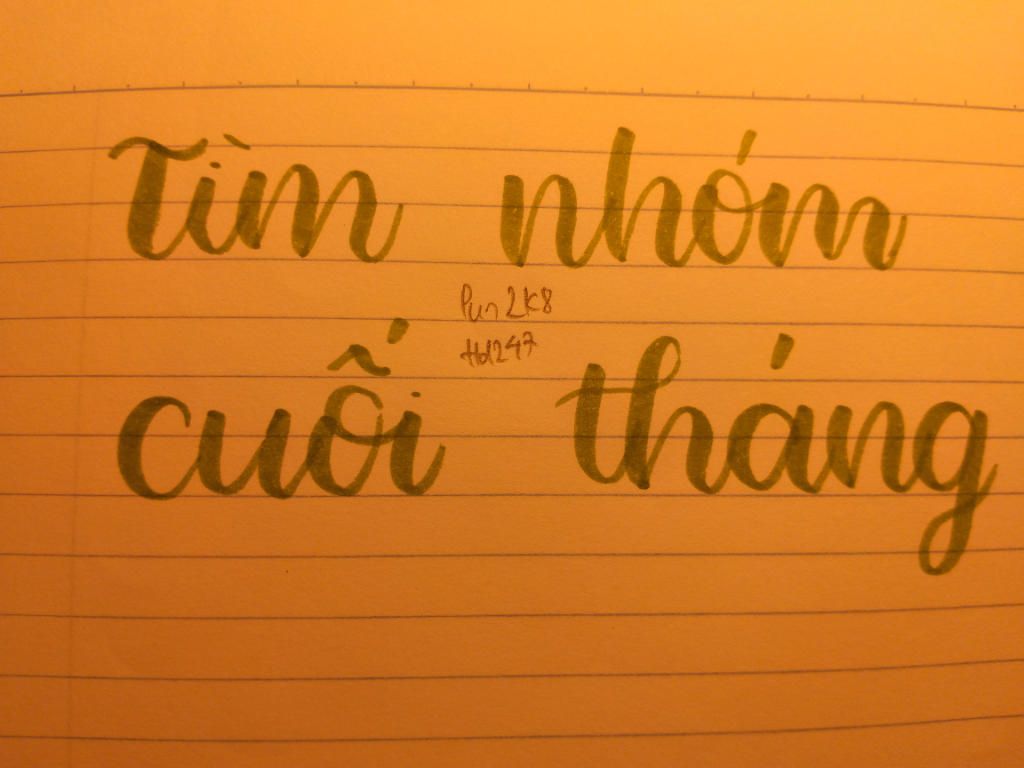 Tìm nhóm
Pun2K8
Hd247
cuối tháng